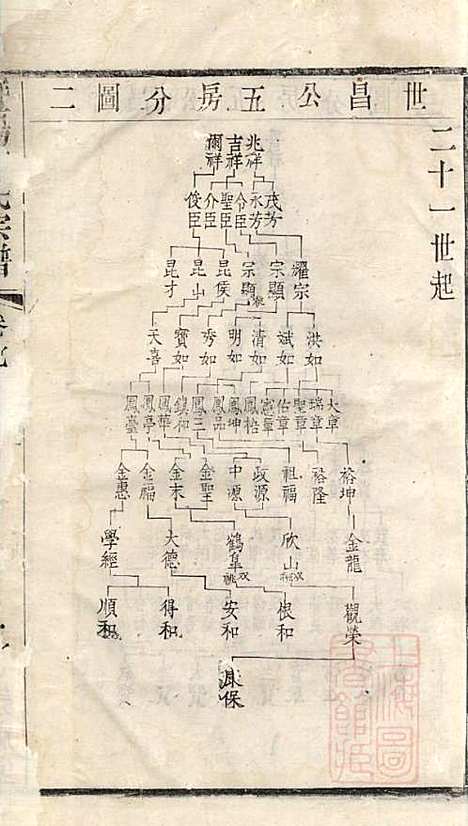 世昌公五房分圖二
二十一世起
兆祥 吉祥 爾祥
茂芳 永芳 令臣 聖臣 介臣 俊臣
耀宗 宗顯 宗顯 昆侯 昆山 昆才
洪如 斌如 清如 明如 秀如 寶如 天喜
大章 瑞章 聖章 佑章 憲章 鳳梧 鳳坤 鳳品 鳳三 鎮和 鳳華 鳳亭 鳳臺
裕坤 裕隆 祖福 政源 中源 金聖 金來 金福 金惠
金龍 欣山 鶴皐 大德 學經
雙祧
觀榮 良和 安和 得和 順和
保
宗譜
卷